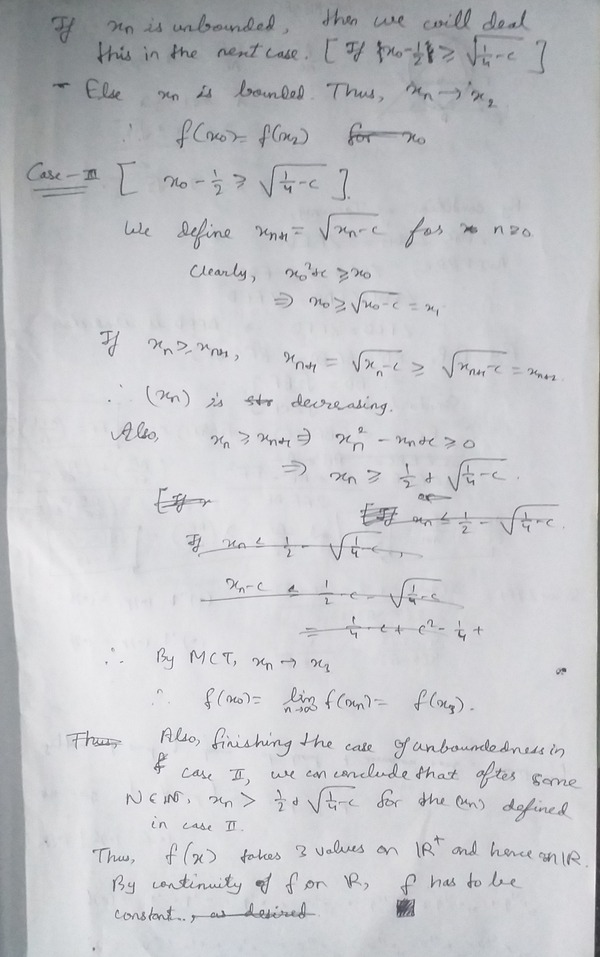 If xn is unbounded, then we will deal
this in the next case. [ If {x0-1/2} ≥ √(1/4-c) ]
- Else xn is bounded. Thus, xn → x2
∴ f(x0) = f(x2) for x0
Case-III [ x0 - 1/2 ≥ √(1/4-c) ].
We define xn+1 = √(xn-c) for n≥0
Clearly, x0²+c ≥ x0
⇒ x0 ≥ √(x0-c) = x1
If xn ≥ xn+1, xn+1 = √(xn-c) ≥ √(xn+1-c) = xn+2.
∴ (xn) is str decreasing.
Also, xn ≥ xn+1 ⇒ xn² - xn+c ≥ 0
⇒ xn ≥ 1/2 + √(1/4-c).
[If x [If or xn ≤ 1/2 - √(1/4-c).
If xn ≤ 1/2 - √(1/4-c),
xn-c ≤ 1/2 - c - √(1/4-c)
= 1/4 - c + c² - 1/4 +
∴ By MCT, xn → x3
∴ f(x0) = lim n→∞ f(xn) = f(x3).
Thus, Also, finishing the case of unboundedness in
case II, we can conclude that after some
N∈ℕ, xn > 1/2 + √(1/4-c) for the (xn) defined
in case II.
Thus, f(x) takes 3 values on ℝ⁺ and hence on ℝ.
By continuity of f on ℝ, f has to be
constant., as desired.